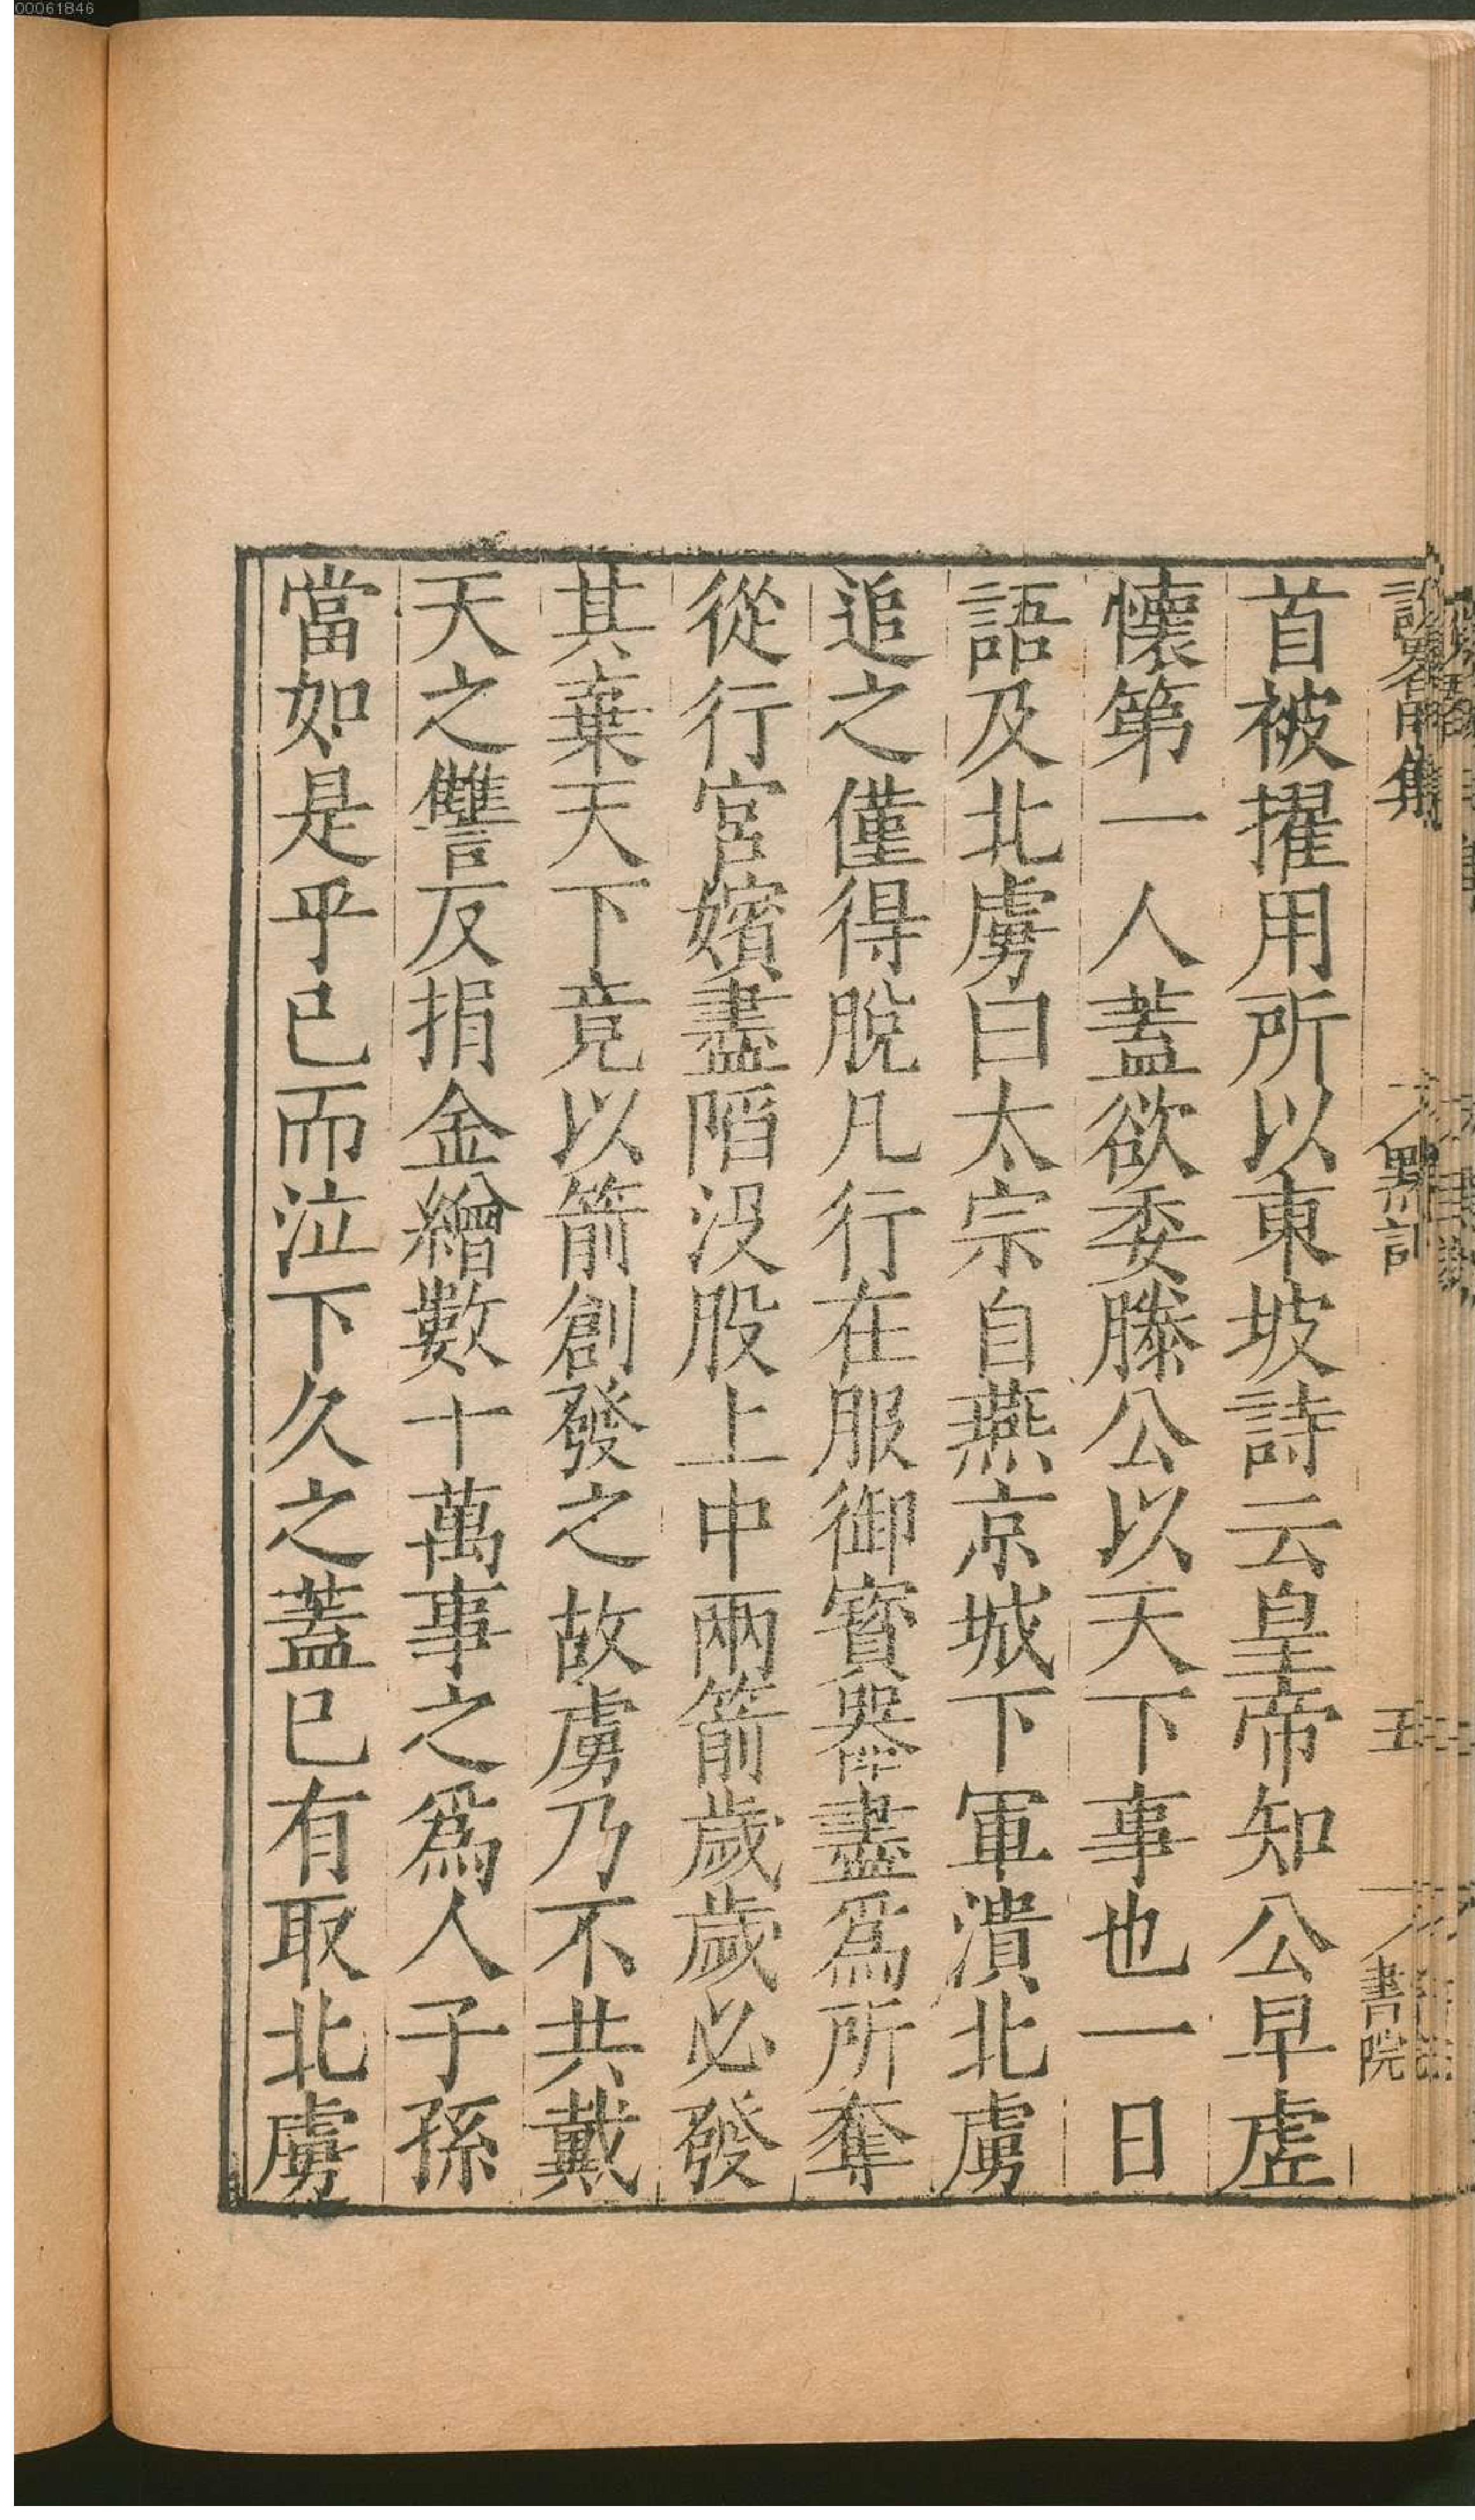 00061846
首被擢用所以東坡詩云皇帝知公早虛
懷第一人蓋欲委滕公以天下事也一日
語及北虜曰太宗自燕京城下軍潰北虜
追之僅得脫凡行在服御寳器盡爲所奪
從行宮嬪盡陷沒股上中兩箭歲歲必發
其棄天下竟以箭創發之故虜乃不共戴
天之讐反捐金繒數十萬事之爲人子孫
當如是乎已而泣下久之蓋已有取北虜
五
書院